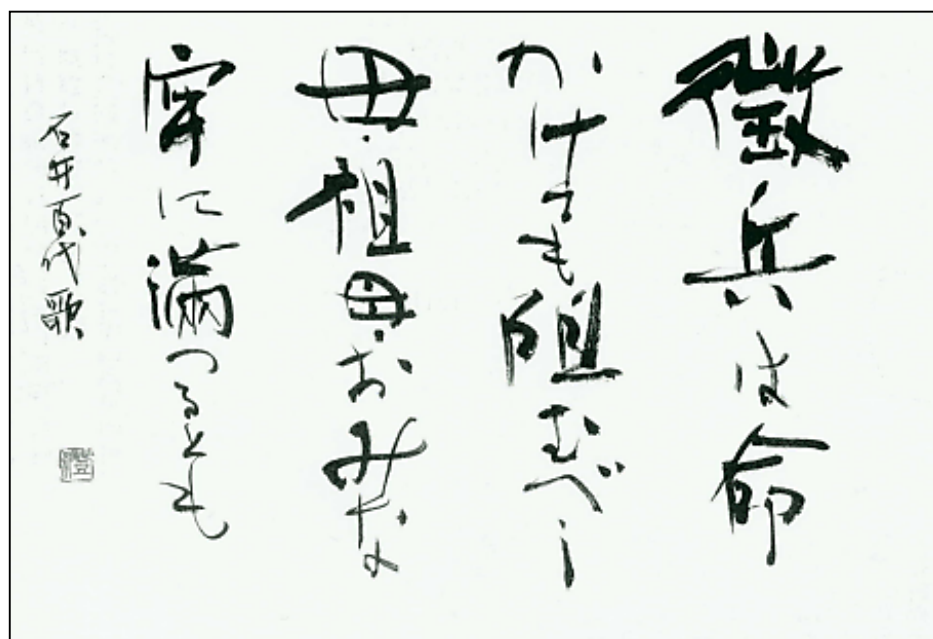 徴兵は命
かけても阻むべし
母・祖母・おみな
牢に満つるとも
石井百代歌